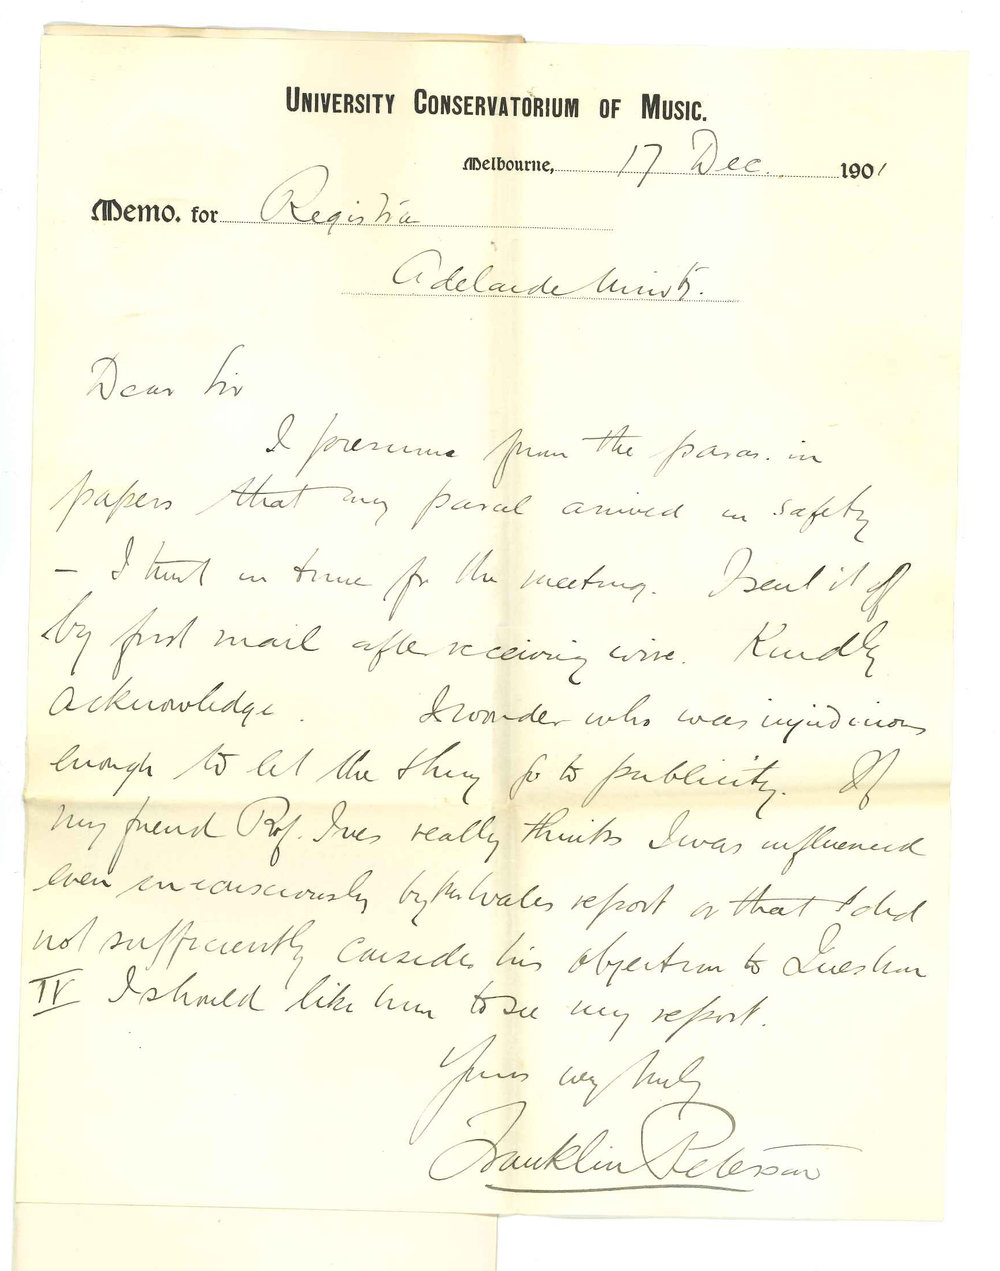 University Conservatorium of Music.
Melbourne, 17 Dec. 1901
Memo. for Registrar
Adelaide Univsty.
Dear Sir
I presume from the paras. in
papers that my parcel arrived in safety
– I trust in time for the meeting. I sent it off
by first mail after receiving wire. Kindly
acknowledge. I wonder who was injudicious
enough to let the thing go to publicity. If
my friend Prof. Ives really thinks I was influenced
even unconsciously by Wales report or that I did
not sufficiently consider his objection to Question
IV I should like him to see my report.
Yours very truly
Franklin Peterson